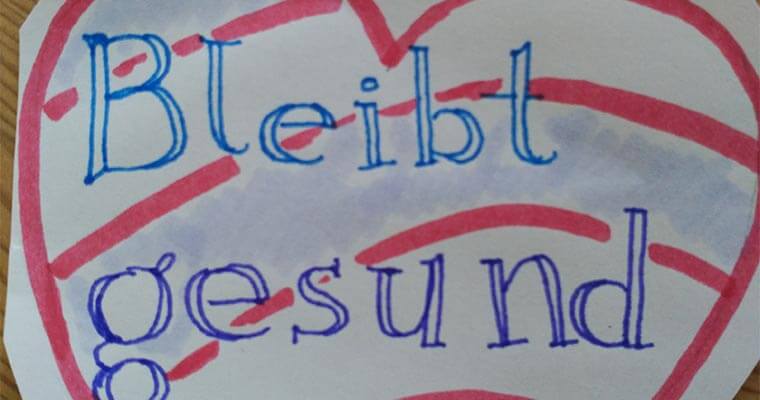 Bleibt
gesund